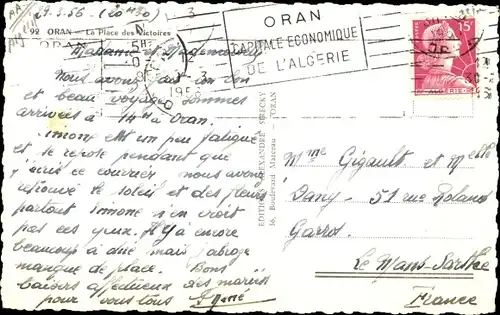 29.3.56 (20H30)
92 ORAN — La Place des Victoires
ORAN
CAPITALE ECONOMIQUE
DE L'ALGERIE
15F
ALGERIE
Madame et Mademoiselle
Nous avons fait un bon
et beau voyage sommes
arrivées à 14H à Oran.
Simone est un peu fatiguée
et se repose pendant que
j'écris ce courrier nous avons
retrouvé le soleil et des fleurs
partout Simone n'en croit
pas ses yeux. Il y a encore
beaucoup à dire mais j'abrège
manque de place. Bons
baisers affectueux des mariés
pour vous tous
EDITIONS ALEXANDRE
16, Boulevard Marceau - ORAN
Mme Gigault et Melle
Dany - 51 rue Roland
Garros.
Le Mans - Sarthe
France